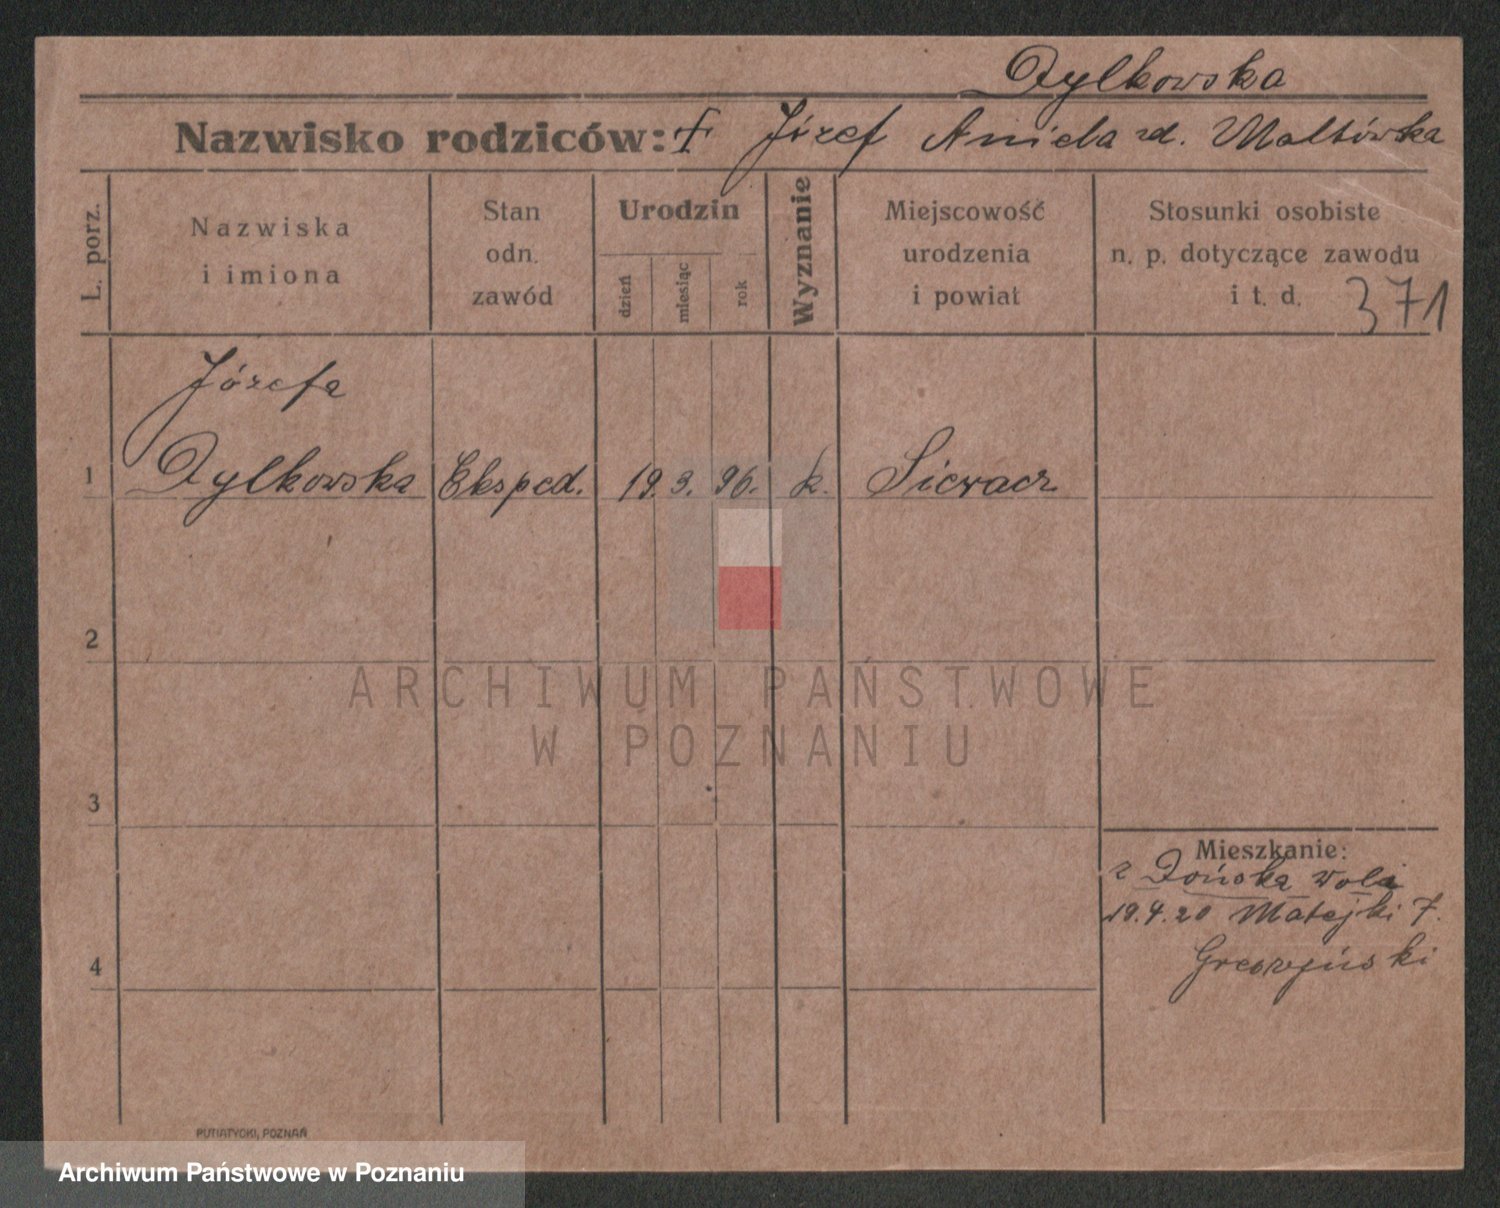 Dylkowska
Nazwisko rodziców: † Józef Aniela zd. Maltówska
L. porz.
Nazwiska
i imiona
Stan
odn.
zawód
Urodzin
dzień
miesiąc
rok
Wyznanie
Miejscowość
urodzenia
i powiat
Stosunki osobiste
n. p. dotyczące zawodu
i t. d. 371
Józefa
1 Dylkowska Eksped. 19. 3. 96. k. Sieracz
2
ARCHIWUM PAŃSTWOWE
W POZNANIU
3
Mieszkanie:
z Dońska wola
19.4.20 Matejki 7.
4
PUTIATYCKI, POZNAŃ
Archiwum Państwowe w Poznaniu